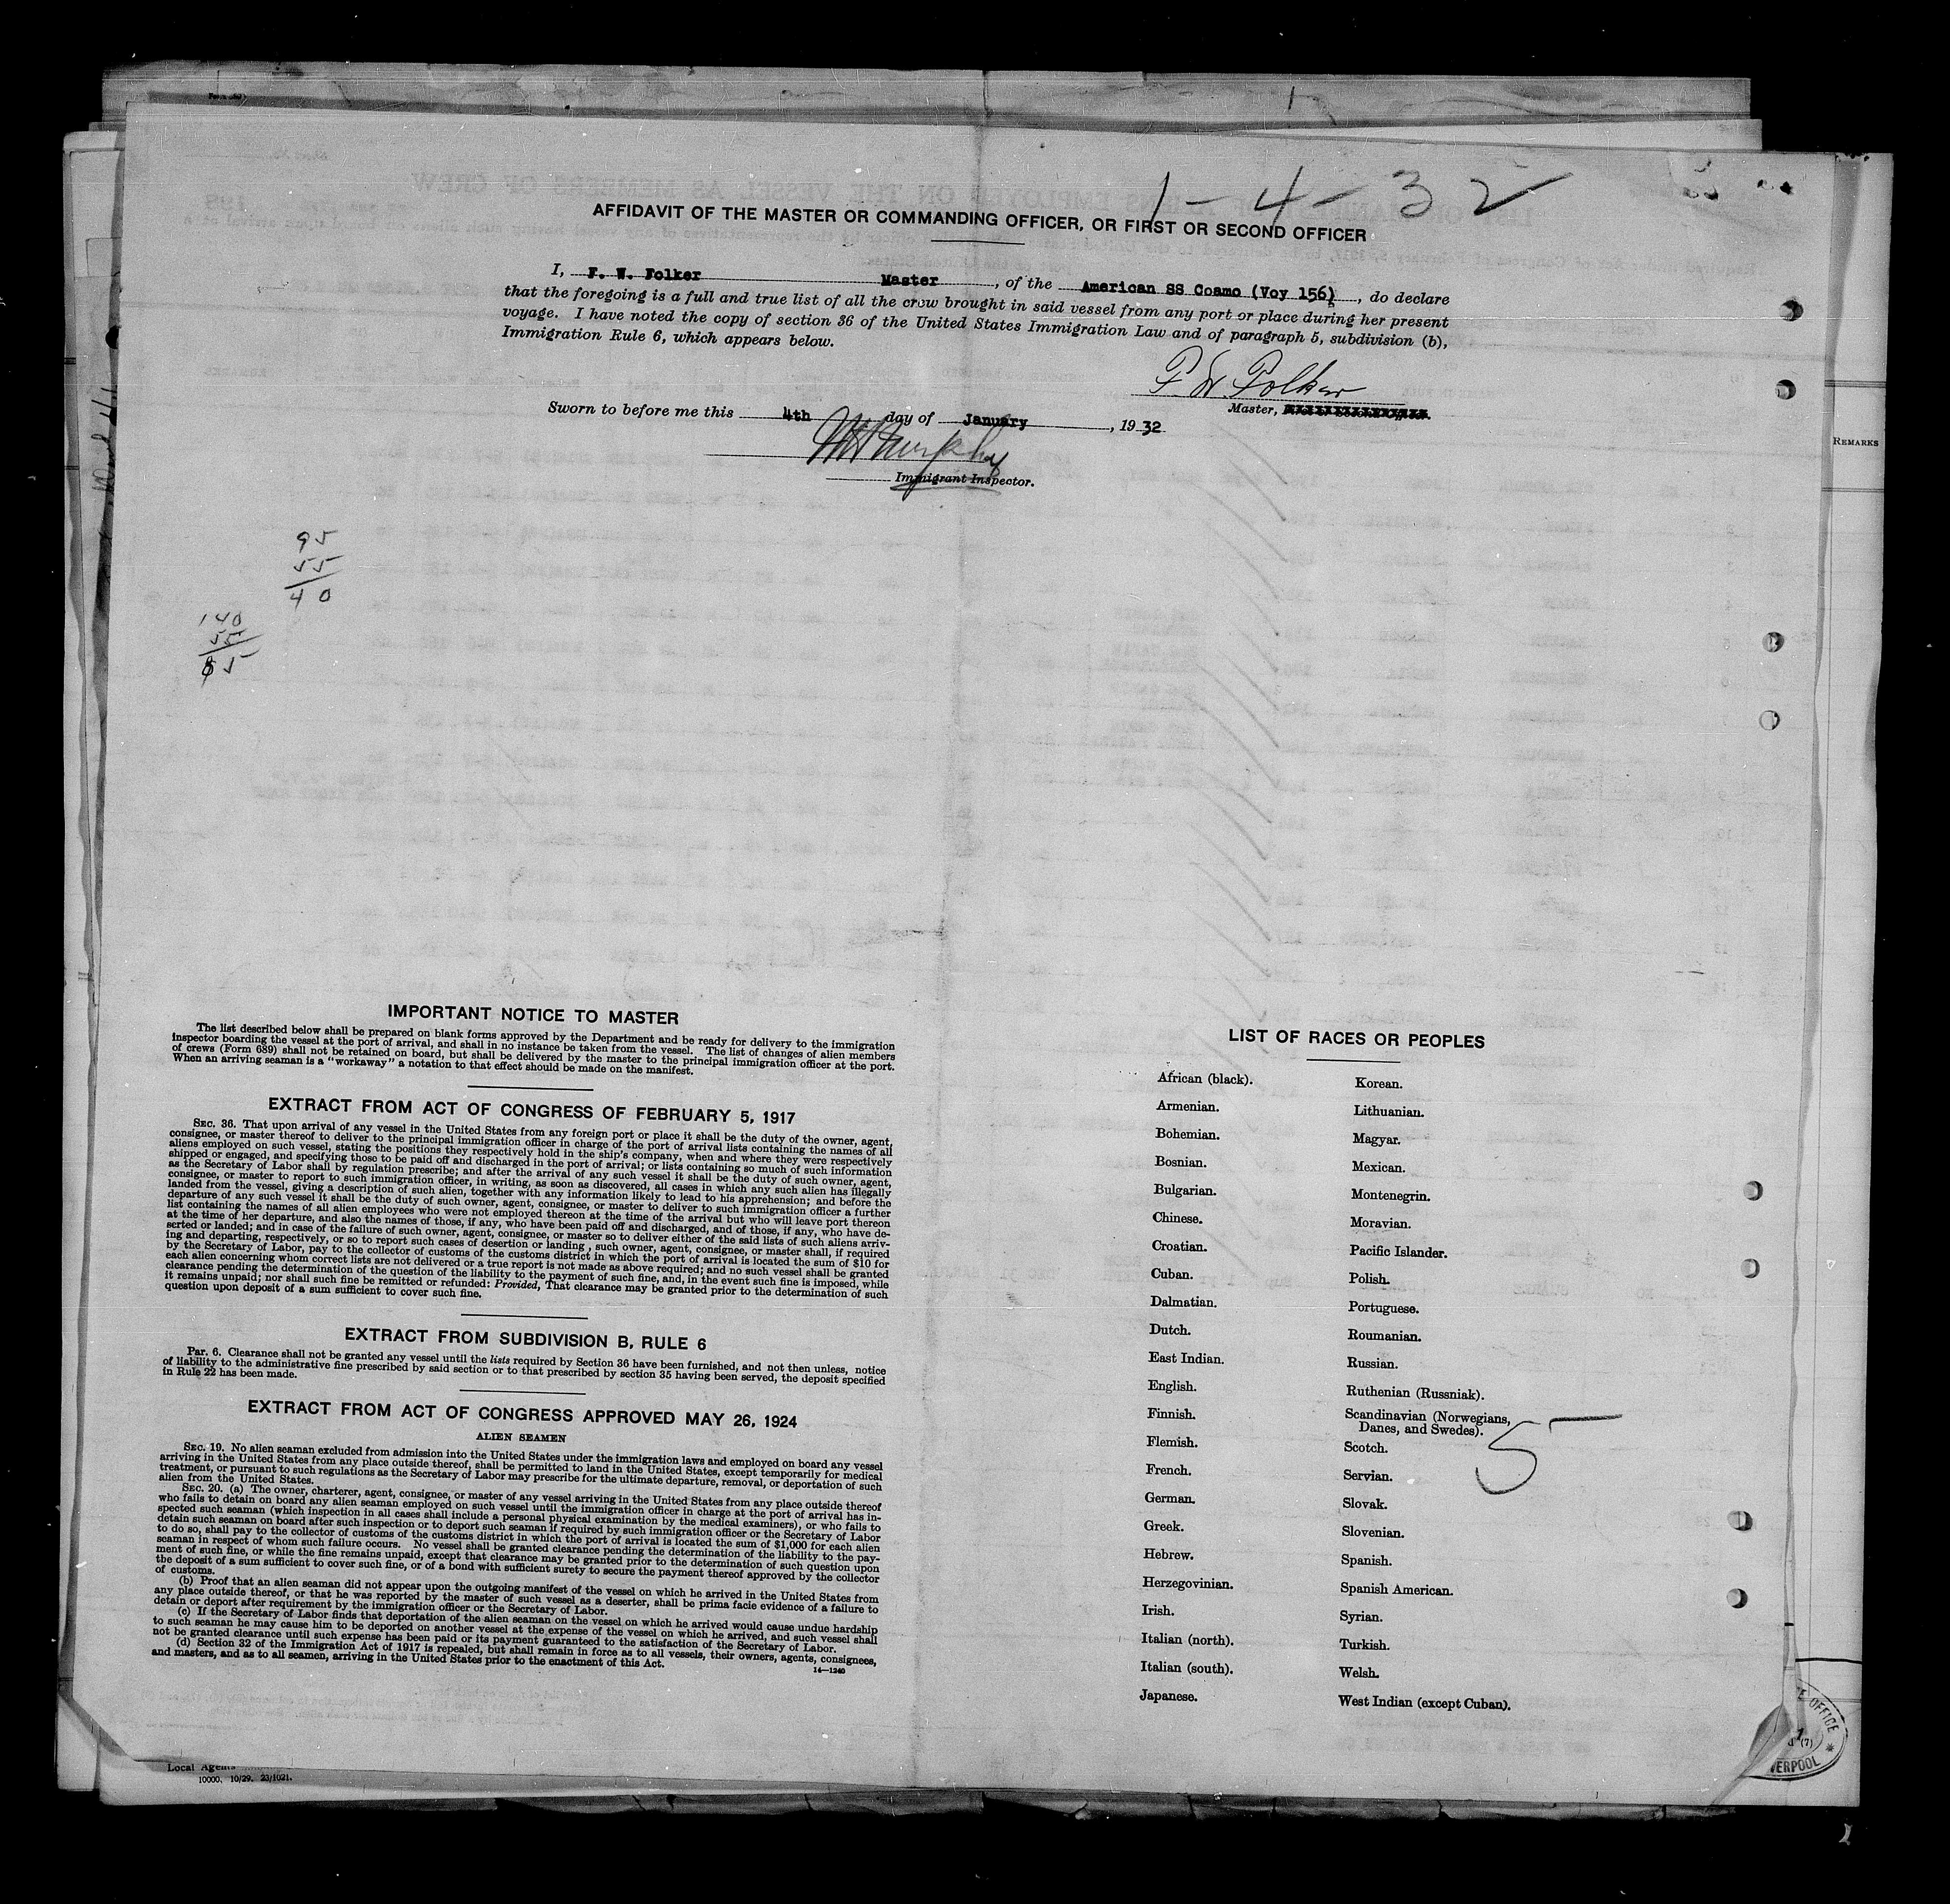 1-4-32
AFFIDAVIT OF THE MASTER OR COMMANDING OFFICER, OR FIRST OR SECOND OFFICER
I, F. W. Folker Master, of the American SS Coamo (Voy 156), do declare
that the foregoing is a full and true list of all the crew brought in said vessel from any port or place during her present
voyage. I have noted the copy of section 36 of the United States Immigration Law and of paragraph 5, subdivision (b),
Immigration Rule 6, which appears below.
F. W. Folker
Master,
Sworn to before me this 4th day of January, 1932
Murphy
Immigrant Inspector.
REMARKS
95
55
40
140
55
85
IMPORTANT NOTICE TO MASTER
The list described below shall be prepared on blank forms approved by the Department and be ready for delivery to the immigration
inspector boarding the vessel at the port of arrival, and shall in no instance be taken from the vessel. The list of changes of alien members
of crews (Form 689) shall not be retained on board, but shall be delivered by the master to the principal immigration officer at the port.
When an arriving seaman is a "workaway" a notation to that effect should be made on the manifest.
EXTRACT FROM ACT OF CONGRESS OF FEBRUARY 5, 1917
SEC. 36. That upon arrival of any vessel in the United States from any foreign port or place it shall be the duty of the owner, agent,
consignee, or master thereof to deliver to the principal immigration officer in charge of the port of arrival lists containing the names of all
aliens employed on such vessel, stating the positions they respectively hold in the ship's company, when and where they were respectively
shipped or engaged, and specifying those to be paid off and discharged in the port of arrival; or lists containing so much of such information
as the Secretary of Labor shall by regulation prescribe; and after the arrival of any such vessel it shall be the duty of such owner, agent,
consignee, or master to report to such immigration officer, in writing, as soon as discovered, all cases in which any such alien has illegally
landed from the vessel, giving a description of such alien, together with any information likely to lead to his apprehension; and before the
departure of any such vessel it shall be the duty of such owner, agent, consignee, or master to deliver to such immigration officer a further
list containing the names of all alien employees who were not employed thereon at the time of the arrival but who will leave port thereon
at the time of her departure, and also the names of those, if any, who have been paid off and discharged, and of those, if any, who have de-
serted or landed; and in case of the failure of such owner, agent, consignee, or master so to deliver either of the said lists of such aliens arriv-
ing and departing, respectively, or so to report such cases of desertion or landing, such owner, agent, consignee, or master shall, if required
by the Secretary of Labor, pay to the collector of customs of the customs district in which the port of arrival is located the sum of $10 for
each alien concerning whom correct lists are not delivered or a true report is not made as above required; and no such vessel shall be granted
clearance pending the determination of the question of the liability to the payment of such fine, and, in the event such fine is imposed, while
it remains unpaid; nor shall such fine be remitted or refunded: Provided, That clearance may be granted prior to the determination of such
question upon deposit of a sum sufficient to cover such fine.
EXTRACT FROM SUBDIVISION B, RULE 6
Par. 6. Clearance shall not be granted any vessel until the lists required by Section 36 have been furnished, and not then unless, notice
of liability to the administrative fine prescribed by said section or to that prescribed by section 35 having been served, the deposit specified
in Rule 22 has been made.
EXTRACT FROM ACT OF CONGRESS APPROVED MAY 26, 1924
ALIEN SEAMEN
SEC. 19. No alien seaman excluded from admission into the United States under the immigration laws and employed on board any vessel
arriving in the United States from any place outside thereof, shall be permitted to land in the United States, except temporarily for medical
treatment, or pursuant to such regulations as the Secretary of Labor may prescribe for the ultimate departure, removal, or deportation of such
alien from the United States.
SEC. 20. (a) The owner, charterer, agent, consignee, or master of any vessel arriving in the United States from any place outside thereof
who fails to detain on board any alien seaman employed on such vessel until the immigration officer in charge at the port of arrival has in-
spected such seaman (which inspection in all cases shall include a personal physical examination by the medical examiners), or who fails to
detain such seaman on board after such inspection or to deport such seaman if required by such immigration officer or the Secretary of Labor
to do so, shall pay to the collector of customs of the customs district in which the port of arrival is located the sum of $1,000 for each alien
seaman in respect of whom such failure occurs. No vessel shall be granted clearance pending the determination of the liability to the pay-
ment of such fine, or while the fine remains unpaid, except that clearance may be granted prior to the determination of such question upon
the deposit of a sum sufficient to cover such fine, or of a bond with sufficient surety to secure the payment thereof approved by the collector
of customs.
(b) Proof that an alien seaman did not appear upon the outgoing manifest of the vessel on which he arrived in the United States from
any place outside thereof, or that he was reported by the master of such vessel as a deserter, shall be prima facie evidence of a failure to
detain or deport after requirement by the immigration officer or the Secretary of Labor.
(c) If the Secretary of Labor finds that deportation of the alien seaman on the vessel on which he arrived would cause undue hardship
to such seaman he may cause him to be deported on another vessel at the expense of the vessel on which he arrived, and such vessel shall
not be granted clearance until such expense has been paid or its payment guaranteed to the satisfaction of the Secretary of Labor.
(d) Section 32 of the Immigration Act of 1917 is repealed, but shall remain in force as to all vessels, their owners, agents, consignees,
and masters, and as to all seamen, arriving in the United States prior to the enactment of this Act.
14—1240
LIST OF RACES OR PEOPLES
African (black). Korean.
Armenian. Lithuanian.
Bohemian. Magyar.
Bosnian. Mexican.
Bulgarian. Montenegrin.
Chinese. Moravian.
Croatian. Pacific Islander.
Cuban. Polish.
Dalmatian. Portuguese.
Dutch. Roumanian.
East Indian. Russian.
English. Ruthenian (Russniak).
Finnish. Scandinavian (Norwegians,
Danes, and Swedes).
Flemish. Scotch.
French. Servian.
German. Slovak.
Greek. Slovenian.
Hebrew. Spanish.
Herzegovinian. Spanish American.
Irish. Syrian.
Italian (north). Turkish.
Italian (south). Welsh.
Japanese. West Indian (except Cuban).
5
Local Agents
10000. 10/29. 23/1021.
OFFICE